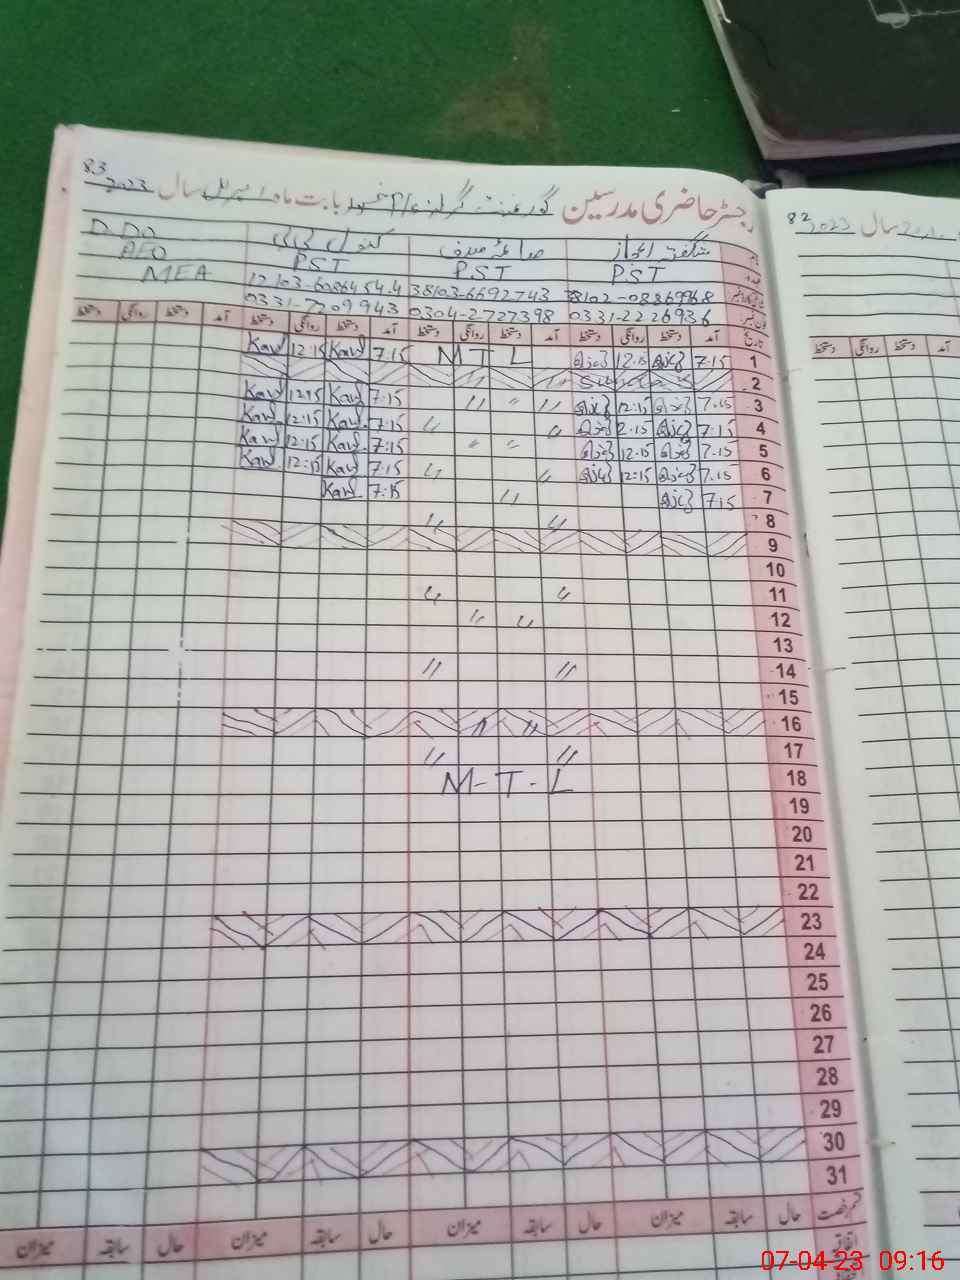 83
2023
رجسٹر حاضری مدرسین گورنمنٹ گرلز بابت ماہ اپریل سال 2023
82
2023 سال
شگفتہ اعجاز صائمہ صدف کنول بی بی D.D.O
PST PST PST AEO
MEA
38102-08869968 38103-6692743 12103-6086454.4
0331-2226936 0304-2727398 0331-7209943
تاریخ آمد دستخط روانگی دستخط آمد دستخط روانگی دستخط آمد دستخط روانگی دستخط آمد دستخط روانگی دستخط
آمد دستخط روانگی دستخط
1 7.15 12.15 M T L 7.15 Kawl 12:15 Kawl
2 Sunday
3 7.15 12:15 〃 〃 〃 7:15 Kawl 12:15 Kawl
4 7:15 2.15 〃 〃 7.15 Kawl 12:15 Kawl
5 7.15 12:15 〃 〃 7:15 Kawl 12:15 Kawl
6 7.15 12:15 〃 〃 7.15 Kawl 12:15 Kawl
7 7.15 〃 7:15 Kawl
8 〃 〃
9
10
11 〃 〃
12 〃 〃
13
14 〃 〃
15
16 〃 〃
17 〃 〃
18 M-T-L
19
20
21
22
23
24
25
26
27
28
29
30
31
قسم رخصت حال سابقہ میزان حال سابقہ میزان حال سابقہ میزان حال سابقہ میزان
اتفاقیہ
07-04-23 09:16